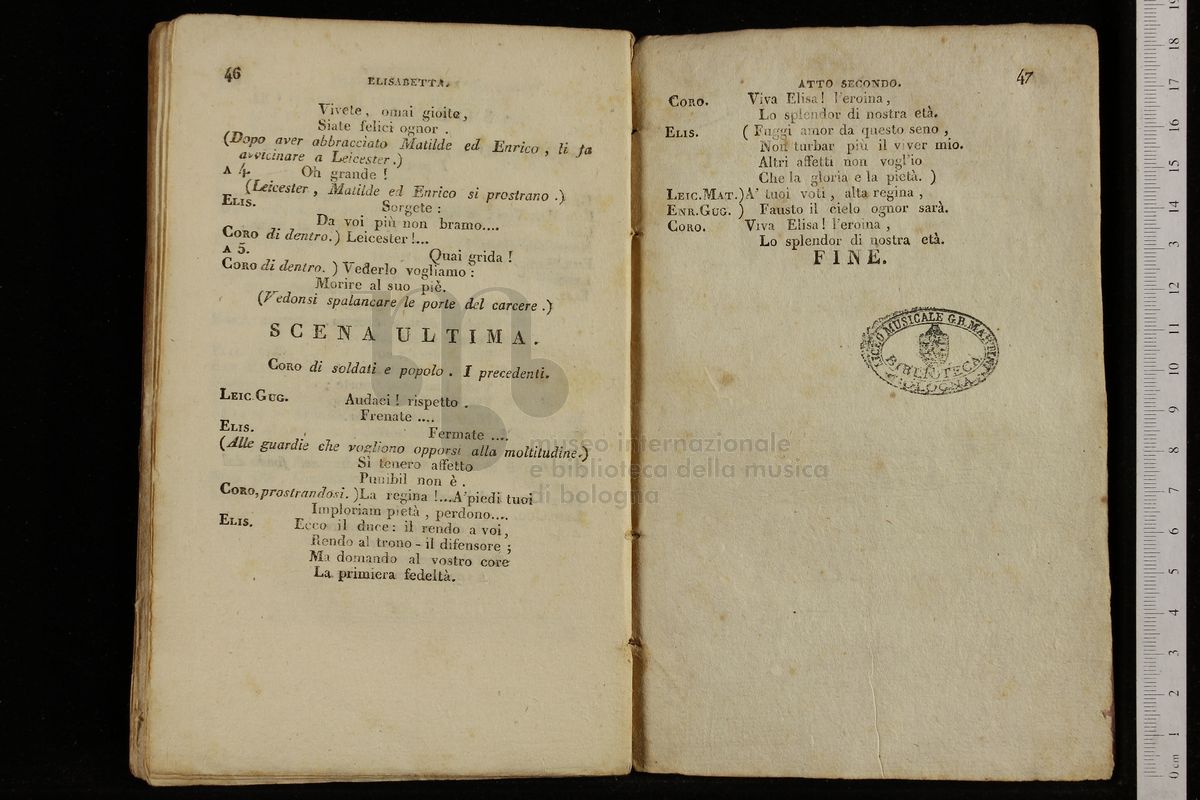 46
ELISABETTA.
Vivete, omai gioite,
Siate felici ognor.
(Dopo aver abbracciato Matilde ed Enrico, li fa
avvicinare a Leicester.)
A 4. Oh grande!
(Leicester, Matilde ed Enrico si prostrano.)
ELIS. Sorgete:
Da voi più non bramo....
CORO di dentro.) Leicester!...
A 5. Quai grida!
CORO di dentro.) Vederlo vogliamo:
Morire al suo piè.
(Vedonsi spalancare le porte del carcere.)
SCENA ULTIMA.
CORO di soldati e popolo. I precedenti.
LEIC.GUG. Audaci! rispetto.
Frenate ....
ELIS. Fermate ....
(Alle guardie che vogliono opporsi alla moltitudine.)
Sì tenero affetto
Punibil non è.
CORO, prostrandosi.) La regina!...A'piedi tuoi
Imploriam pietà, perdono....
ELIS. Ecco il duce: il rendo a voi,
Rendo al trono - il difensore;
Ma domando al vostro core
La primiera fedeltà.
47
ATTO SECONDO.
CORO. Viva Elisa! l'eroina,
Lo splendor di nostra età.
ELIS. (Fuggi amor da questo seno,
Non turbar più il viver mio.
Altri affetti non vogl'io
Che la gloria e la pietà.)
LEIC.MAT.) A' tuoi voti, alta regina,
ENR.GUG.) Fausto il cielo ognor sarà.
CORO. Viva Elisa! l'eroina,
Lo splendor di nostra età.
FINE.
LICEO MUSICALE G.B. MARTINI
BIBLIOTECA
BOLOGNA
museo internazionale
e biblioteca della musica
di bologna
0 cm 1 2 3 4 5 6 7 8 9 10 11 12 13 14 15 16 17 18 19